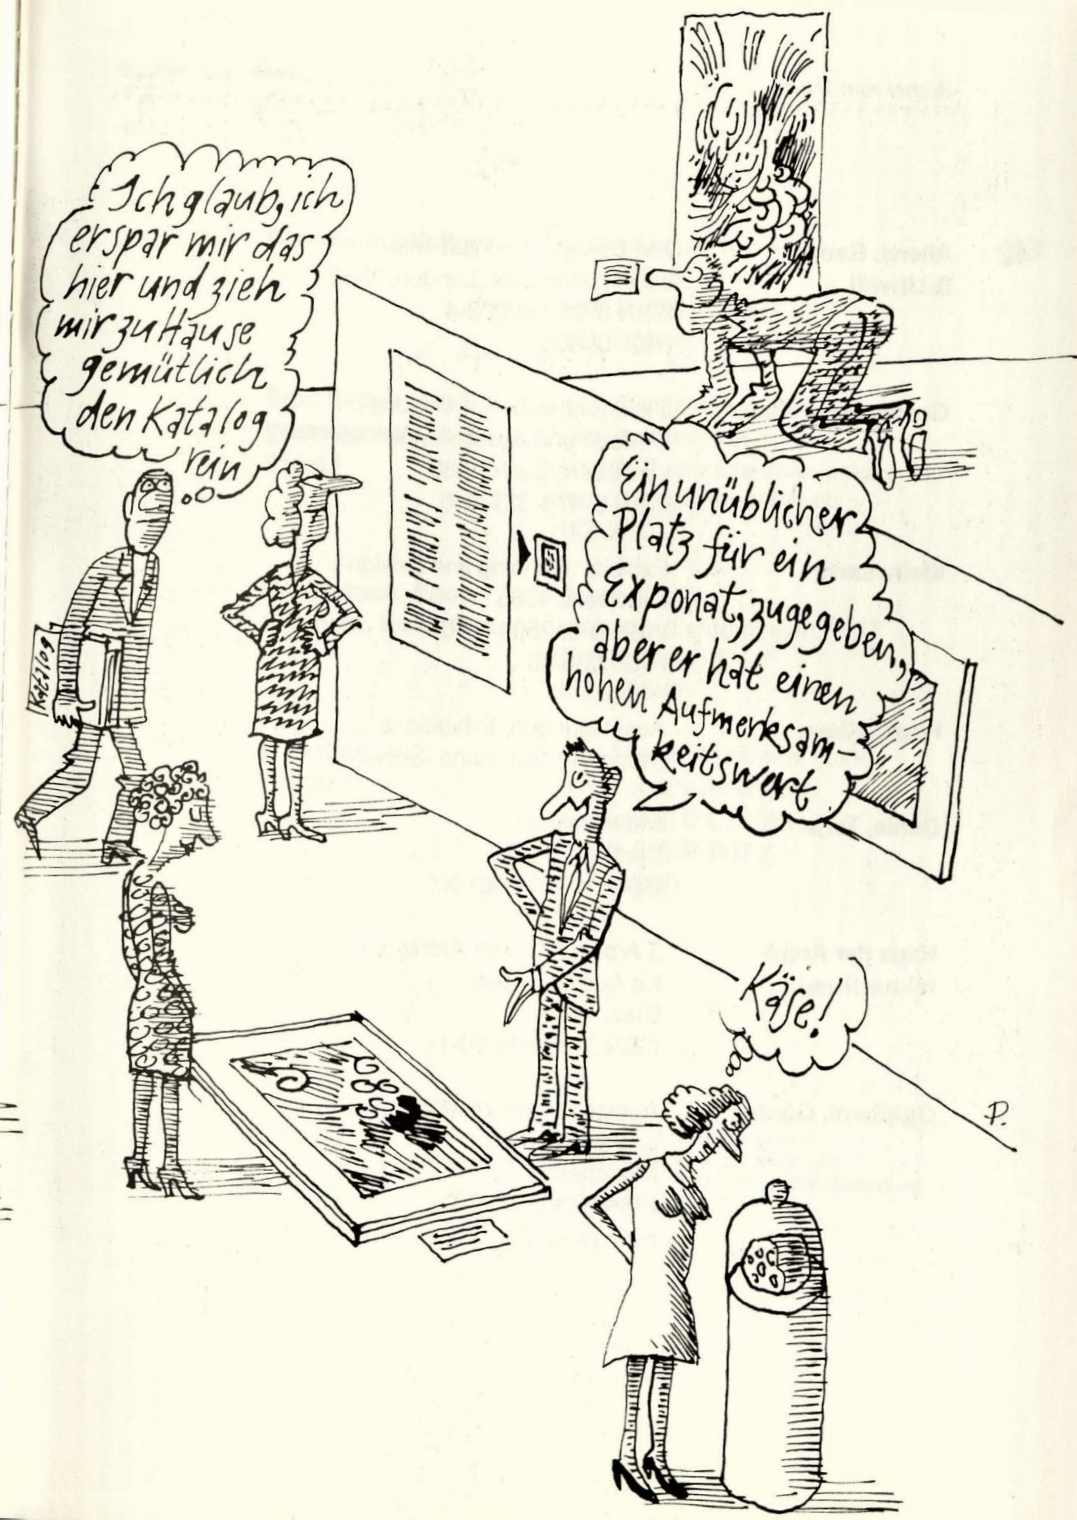 Ich glaub, ich
erspar mir das
hier und zieh
mir zu Hause
gemütlich
den Katalog
rein
Katalog
Ein unüblicher
Platz für ein
Exponat, zugegeben,
aber er hat einen
hohen Aufmerksam-
keitswert
Käse!
P.